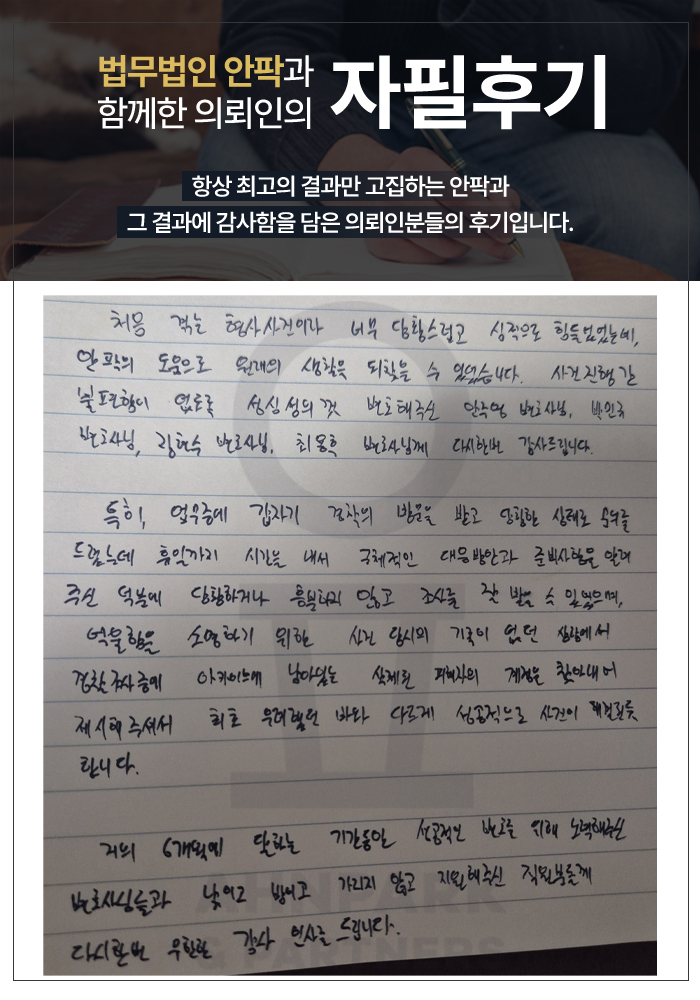 법무법인 안팍과
함께한 의뢰인의
자필후기
항상 최고의 결과만 고집하는 안팍과
그 결과에 감사함을 담은 의뢰인분들의 후기입니다.
처음 겪는 형사사건이라 너무 당황스럽고 심적으로 힘들었었는데,
안팍의 도움으로 원래의 생활을 되찾을 수 있었습니다. 사건진행간
불편함이 없도록 성심성의껏 변호해주신 안주영 변호사님, 박민규
변호사님, 김현수 변호사님, 최용혁 변호사님께 다시한번 감사드립니다.
특히, 업무중에 갑자기 경찰의 방문을 받고 당황한 상태로 문의를
드렸는데 휴일까지 시간을 내서 구체적인 대응방안과 준비사항을 알려
주신 덕분에 당황하거나 흥분하지 않고 조사를 잘 받을 수 있었으며,
억울함을 소명하기 위한 사건 당시의 기록이 없던 상황에서
경찰조사중에 아카이브에 남아있는 삭제된 피해자의 계정을 찾아내어
제시해주셔서 최초 우려했던 바와 다르게 성공적으로 사건이 해결된듯
합니다.
거의 6개월에 달하는 기간동안 성공적인 변호를 위해 노력해주신
변호사님들과 낮이고 밤이고 가리지 않고 지원해주신 직원분들께
다시한번 무한한 감사 인사를 드립니다.
AHNPARK
& PARTNERS